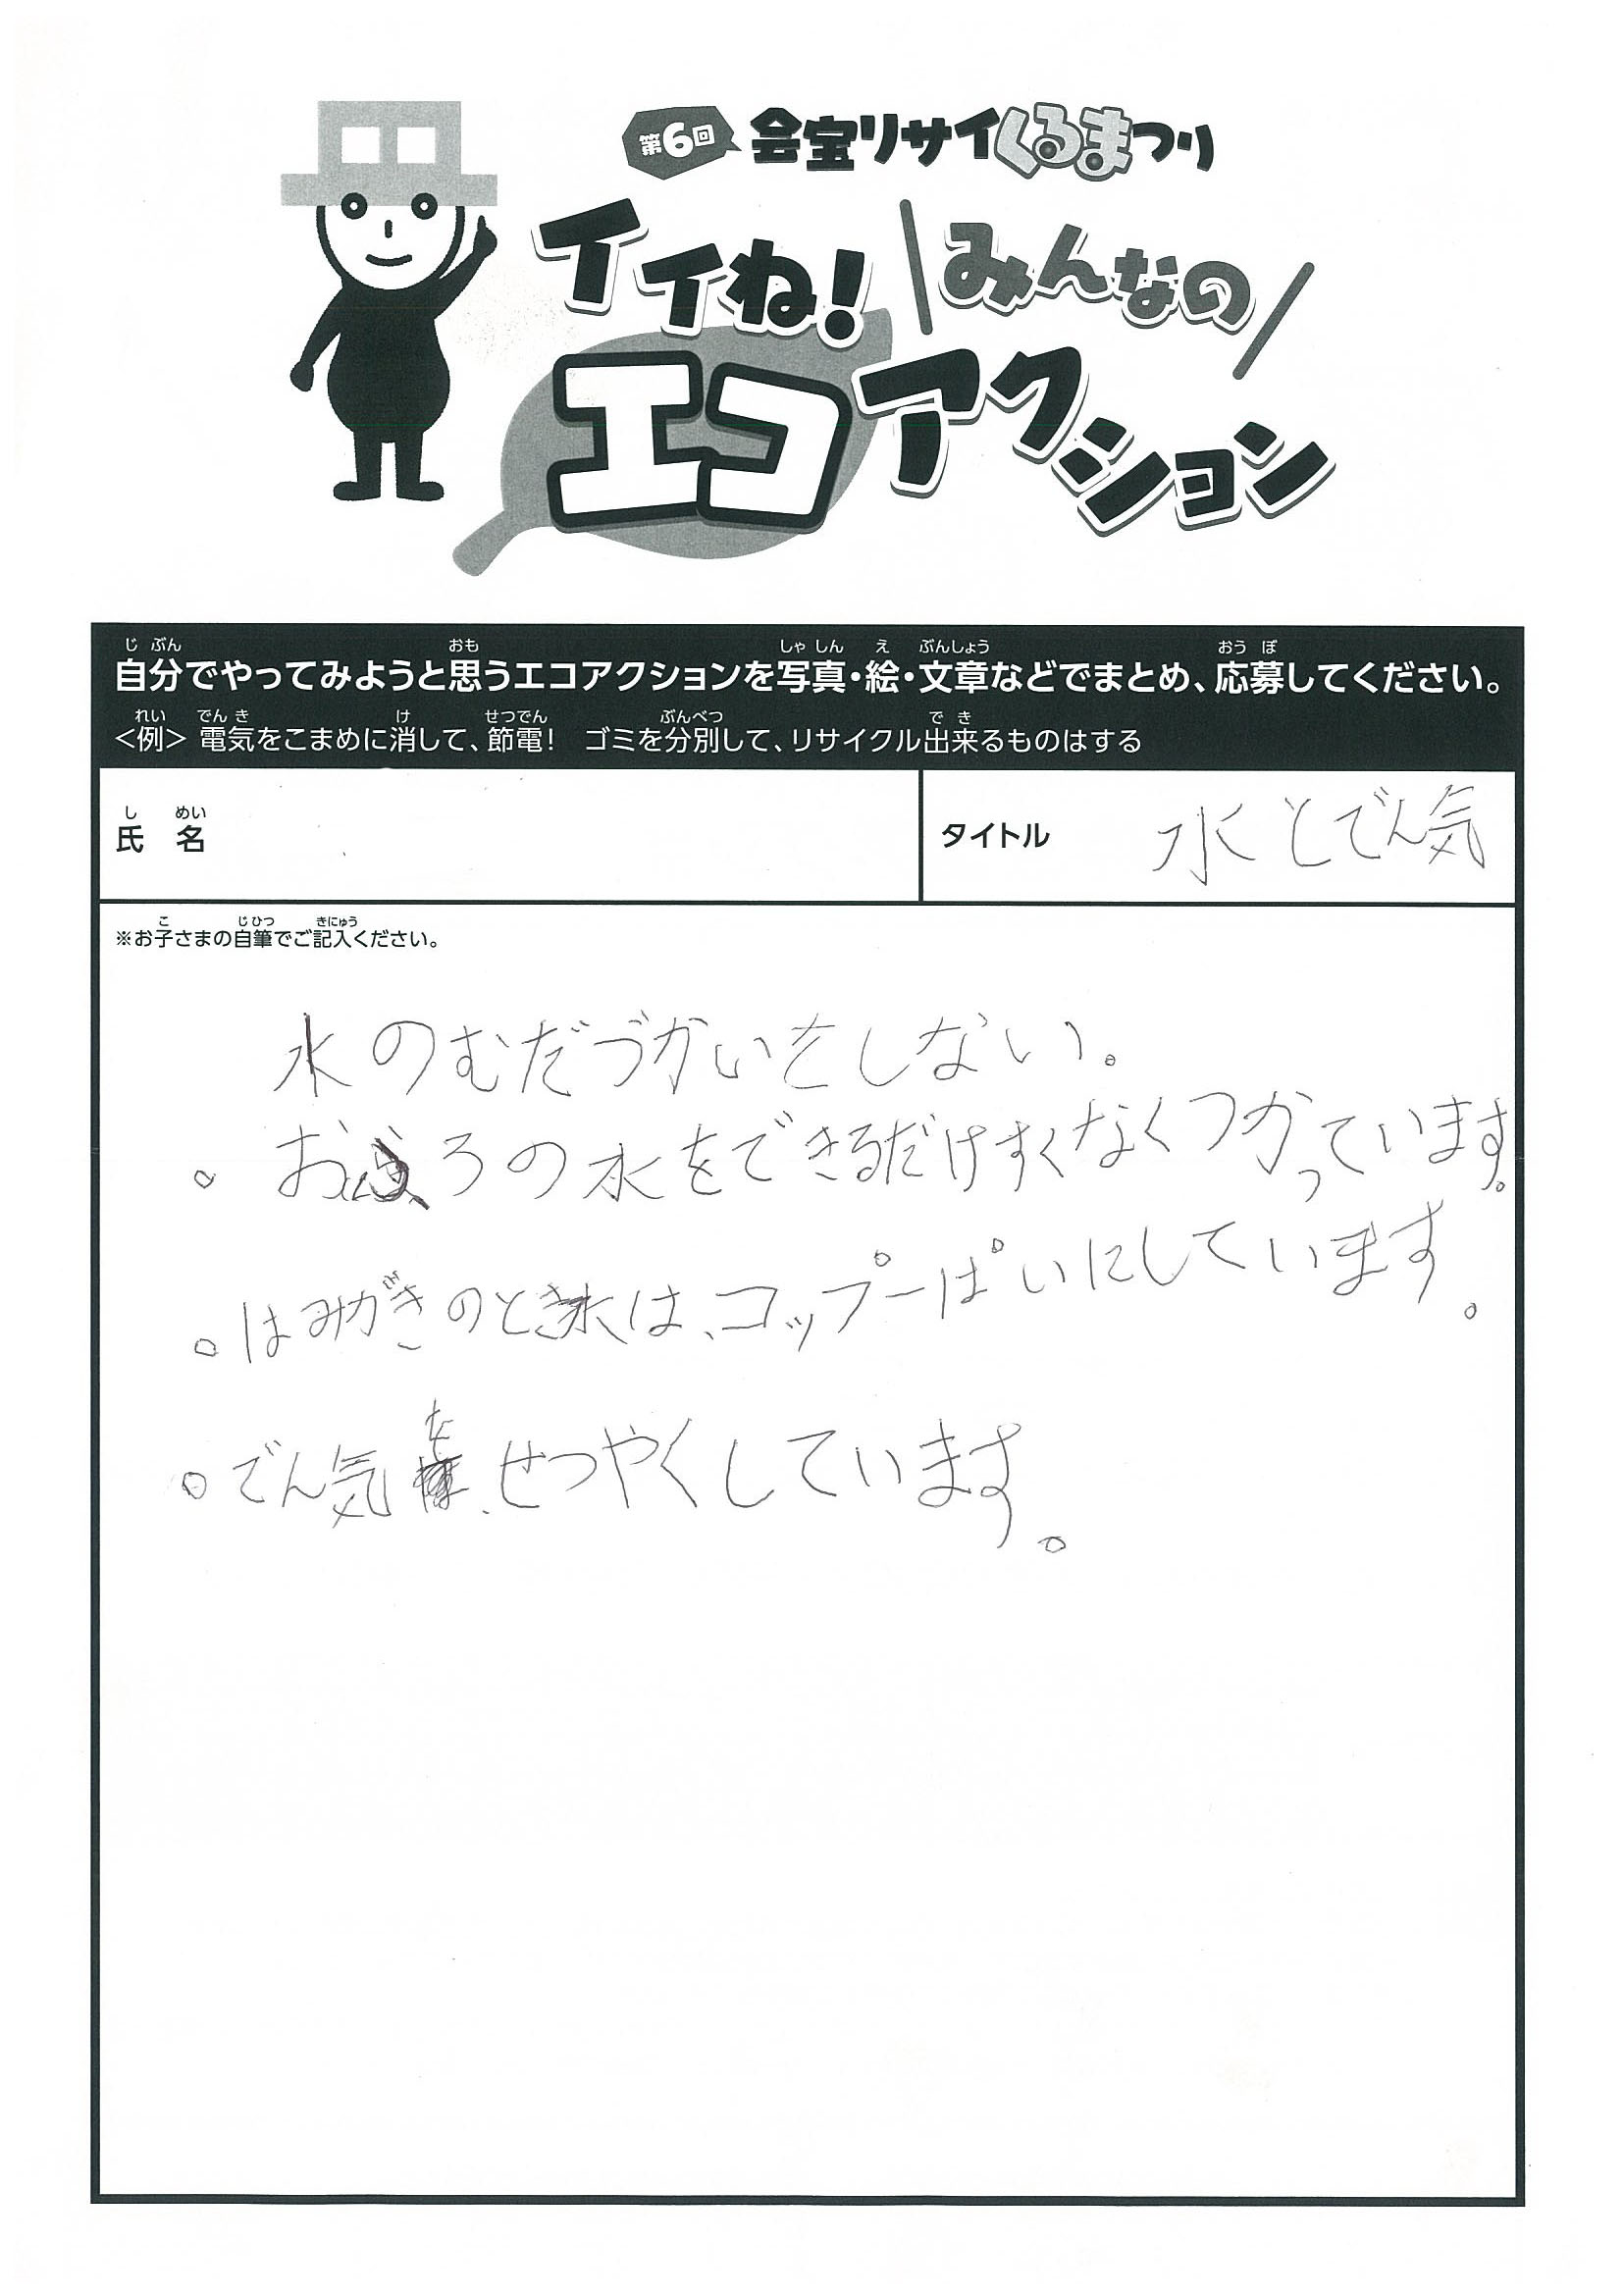 第6回 会宝リサイくるまつり
イイね! みんなの
エコアクション
じぶん おも しゃしん え ぶんしょう おうぼ
自分でやってみようと思うエコアクションを写真・絵・文章などでまとめ、応募してください。
れい でんき け せつでん ぶんべつ でき
<例> 電気をこまめに消して、節電! ゴミを分別して、リサイクル出来るものはする
し めい
氏 名
タイトル 水とでん気
こ じひつ きにゅう
※お子さまの自筆でご記入ください。
水のむだづかいをしない。
。おふろの水をできるだけすくなくつかっています。
。はみがきのとき水は、コップ一ぱいにしています。
。でん気を、せつやくしています。